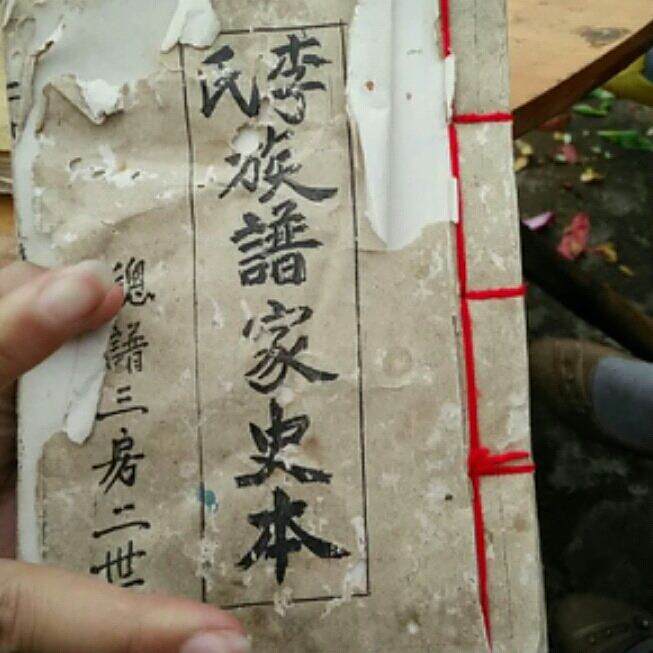 李氏族譜家史本
總譜三房二世